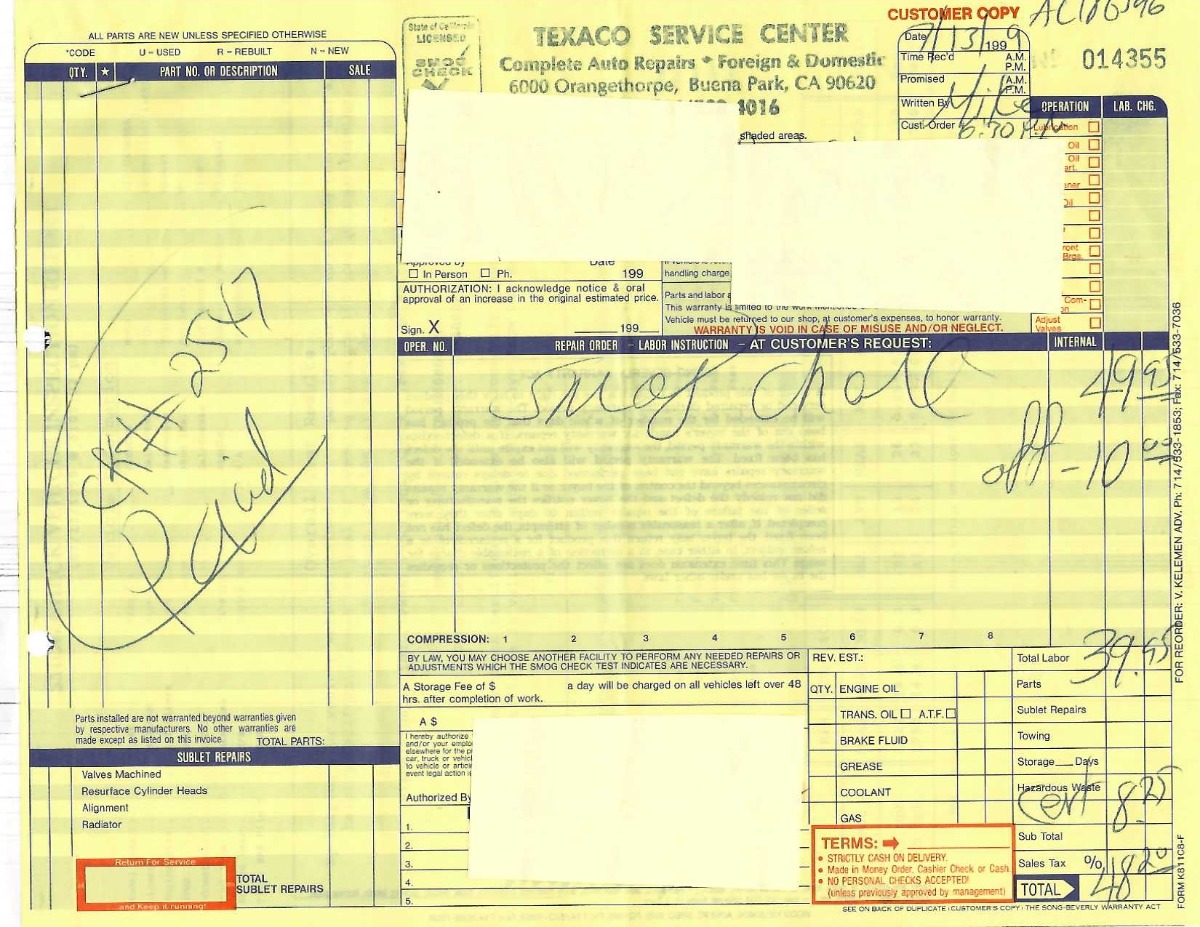 ALL PARTS ARE NEW UNLESS SPECIFIED OTHERWISE
*CODE U – USED R – REBUILT N – NEW
QTY. ★ PART NO. OR DESCRIPTION SALE
CK# 2547
Paid
Parts installed are not warranted beyond warranties given
by respective manufacturers. No other warranties are
made except as listed on this invoice. TOTAL PARTS:
SUBLET REPAIRS
Valves Machined
Resurface Cylinder Heads
Alignment
Radiator
Return For Service
and Keep it running!
TOTAL
SUBLET REPAIRS
State of California
LICENSED
SMOG
CHECK
TEXACO SERVICE CENTER
Complete Auto Repairs * Foreign & Domestic
6000 Orangethorpe, Buena Park, CA 90620
4016
shaded areas.
CUSTOMER COPY
Date 7/13/1999
Time Rec'd A.M.
P.M.
Promised A.M.
P.M.
Written By Mike
Cust. Order
6:30 P.M
014355
OPERATION LAB. CHG.
Lubrication
Oil
Oil
art.
ener
Oil
ront
Brgs.
Com-
on
Adjust
Valves
Approved by Date
In Person Ph. 199
handling charge,
AUTHORIZATION: I acknowledge notice & oral
approval of an increase in the original estimated price.
Sign. X 199
Parts and labor a
This warranty is limited to the work
Vehicle must be returned to our shop, at customer's expenses, to honor warranty.
WARRANTY IS VOID IN CASE OF MISUSE AND/OR NEGLECT.
OPER. NO. REPAIR ORDER – LABOR INSTRUCTION – AT CUSTOMER'S REQUEST: INTERNAL
smog 49.95
off -10 00
COMPRESSION: 1 2 3 4 5 6 7 8
BY LAW, YOU MAY CHOOSE ANOTHER FACILITY TO PERFORM ANY NEEDED REPAIRS OR
ADJUSTMENTS WHICH THE SMOG CHECK TEST INDICATES ARE NECESSARY.
A Storage Fee of $ a day will be charged on all vehicles left over 48
hrs. after completion of work.
A $
I hereby authorize
and/or your emplo
elsewhere for the p
car, truck or vehicl
to vehicle or articl
event legal action is
Authorized By
1.
2.
3.
4.
5.
REV. EST.:
QTY. ENGINE OIL
TRANS. OIL A.T.F.
BRAKE FLUID
GREASE
COOLANT
GAS
TERMS:
• STRICTLY CASH ON DELIVERY.
• Made in Money Order. Cashier Check or Cash.
• NO PERSONAL CHECKS ACCEPTED!
(unless previously approved by management)
Total Labor 39.95
Parts
Sublet Repairs
Towing
Storage Days
Hazardous Waste
Cert 8.25
Sub Total
Sales Tax %
TOTAL 48.20
SEE ON BACK OF DUPLICATE (CUSTOMER'S COPY) THE SONG-BEVERLY WARRANTY ACT
FOR REORDER: V. KELEMEN ADV. Ph: 714/533-1853; Fax: 714/533-7036
FORM K811C8-F